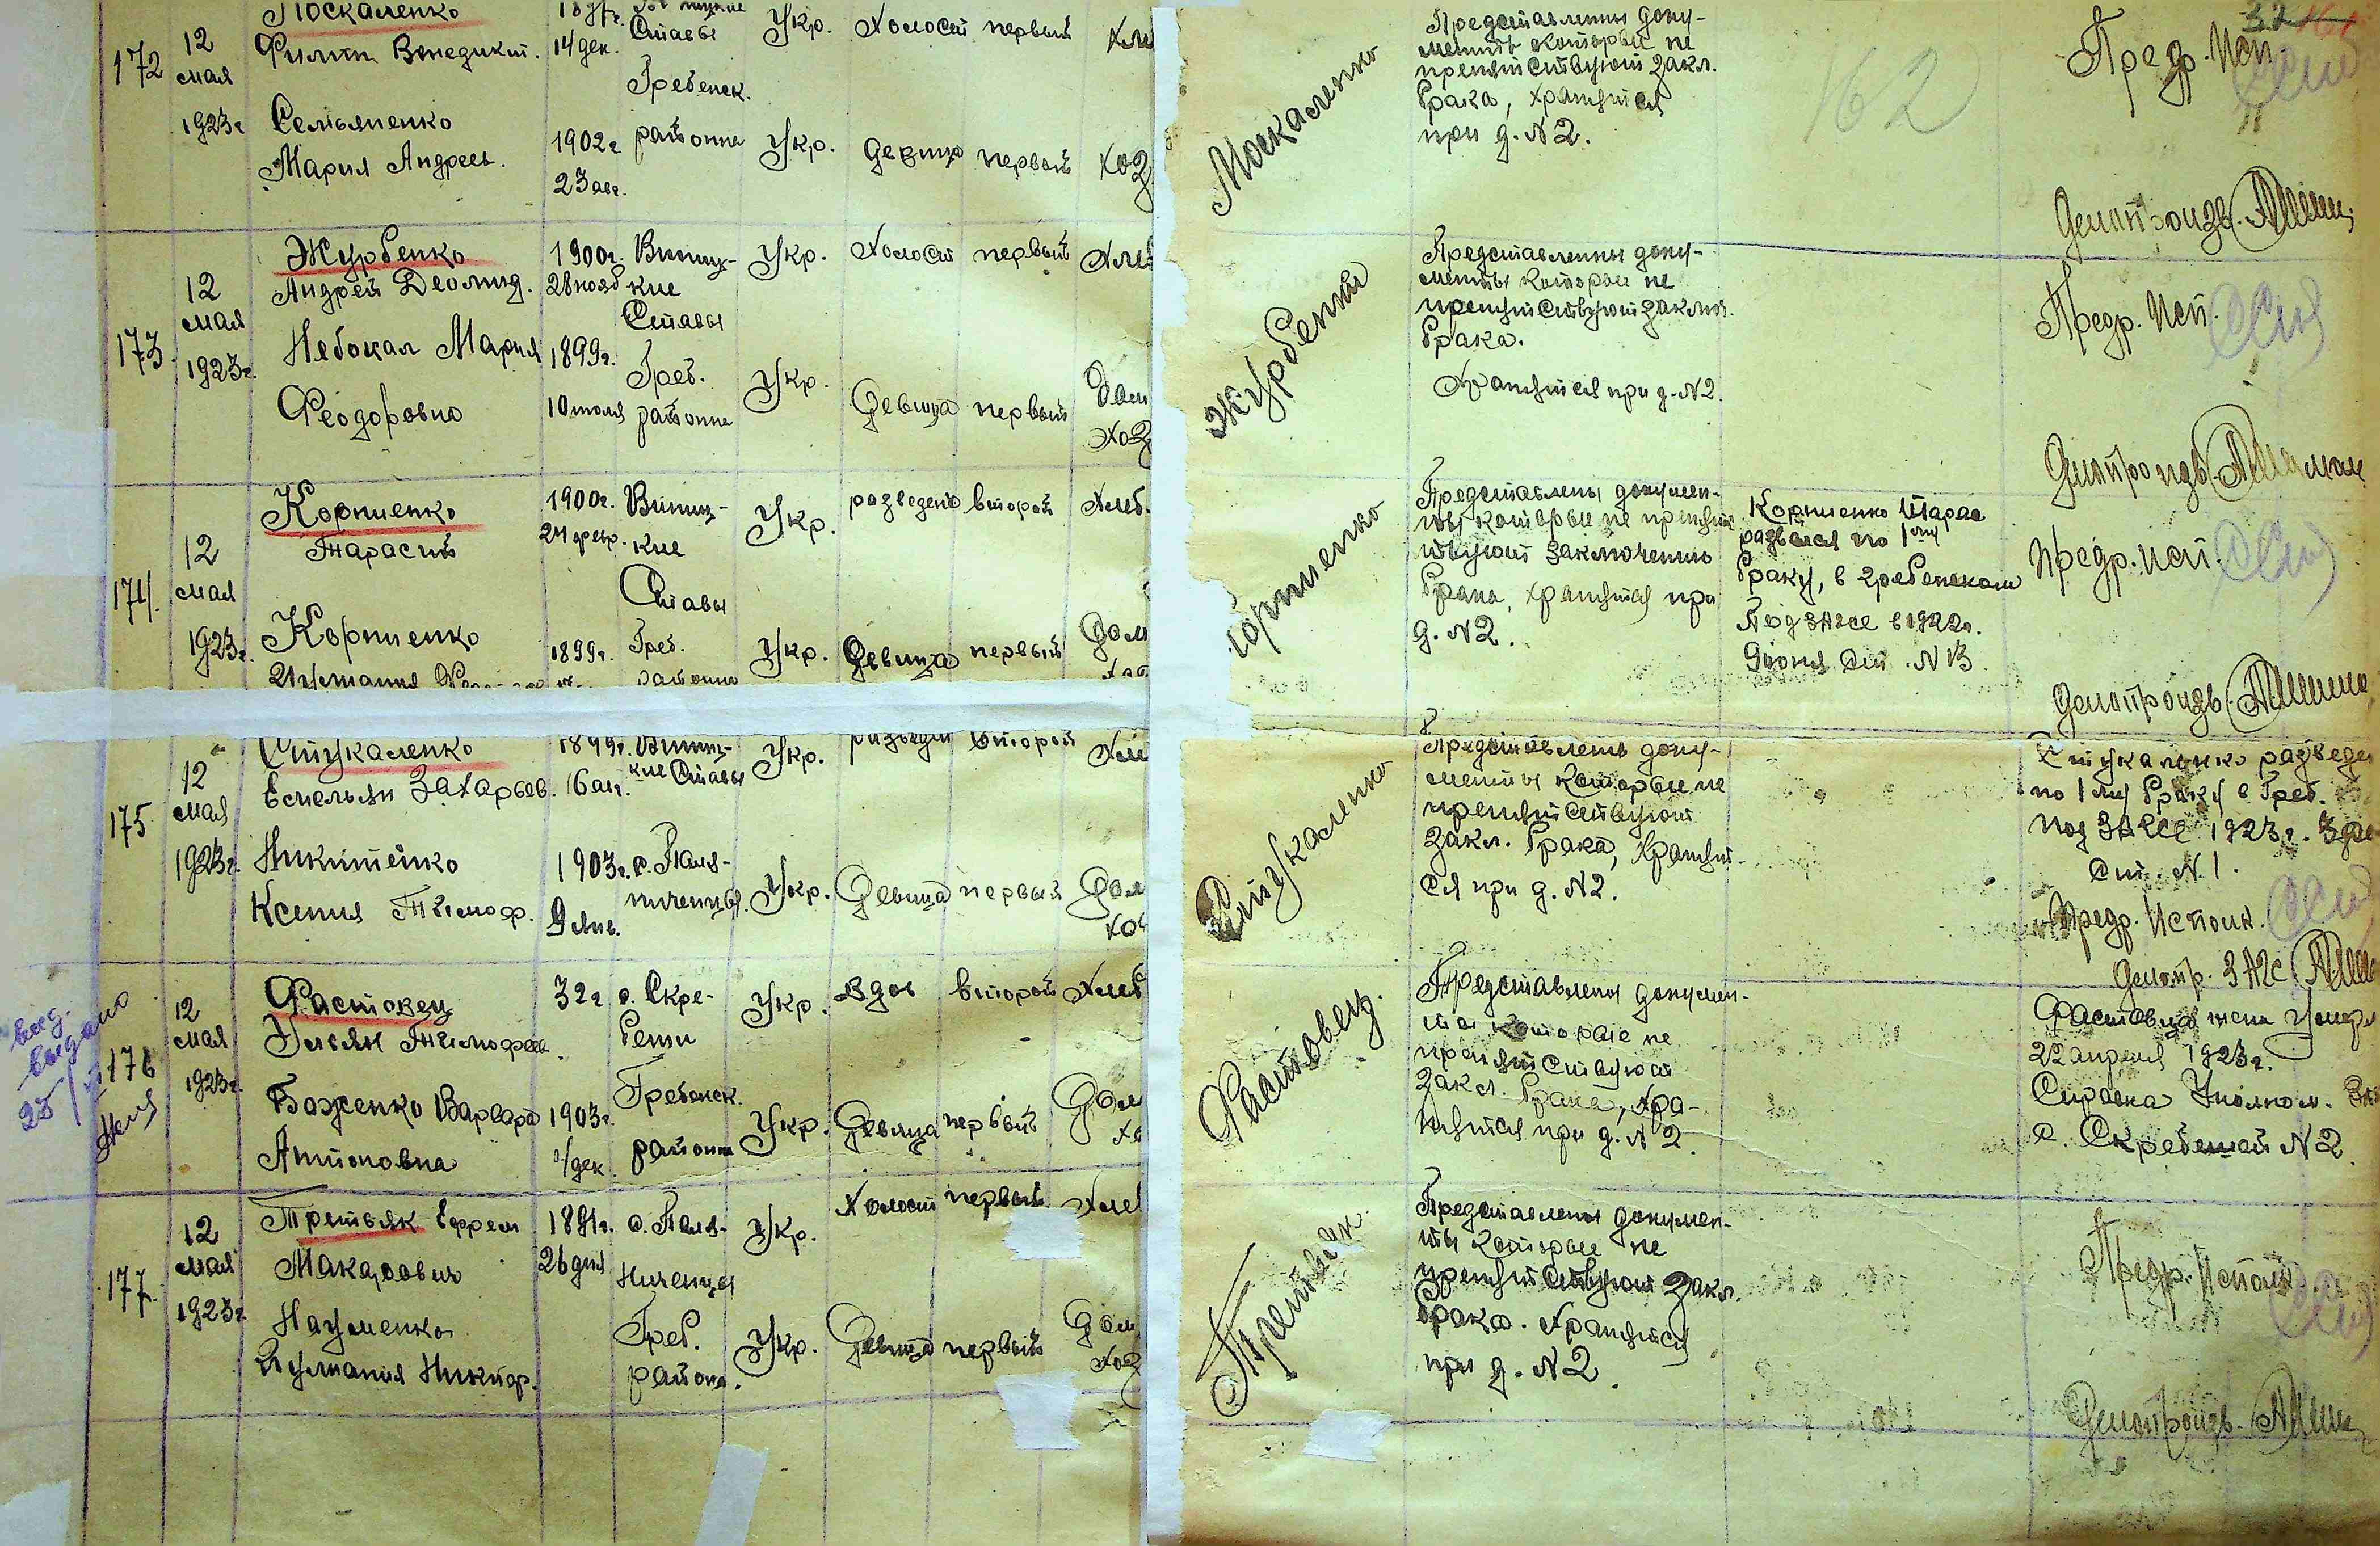 172
12
мая
1923г
Москаленко
Филип Венедикт.
14 дек.
Ставы
Гребенск.
района
Укр. холост первый
Семьяненко
Мария Андреев.
1902г
23 авг.
Укр. девица первый хоз
Москаленко
Представлены доку-
менты которые не
препятствуют закл.
брака, хранятся
при д. N 2.
162
Пред. Исп.
Делопроизв.
173
12
мая
1923г.
Журбенко
Андрей Деомид.
1900г.
28 нояб
Винниц-
кие
Ставы
Греб.
района
Укр. холост первый
Небокал Мария
Феодоровна
1899г.
10 июля
Укр. девица первый
Хоз
Представленны доку-
менты которые не
препятствуют заключ.
брака.
Хранятся при д. N 2.
Предр. Исп.
Делопроизв.
174.
12
мая
1923г.
Корниенко
Тарасий
1900г.
24 февр.
Винниц-
кие
Ставы
Греб.
района
Укр. разведено второй Хлеб.
Корниенко
1899г.
Укр. девица первый
Корниенко
Представлены докумен-
ты которые не препят
ствуют заключению
брака, хранятся при
д. N 2.
Корниенко Тарас
развелся по 1му
браку, в Гребенском
Подзагсе в 1922г.
9 июня Ст. N 13.
Предр. исп.
Делопроизв.
175
12
мая
1923г.
Стукаленко
Емельян Захарьев.
1899г.
Винниц-
кие Ставы
Укр. разведен второй
Никитенко
Ксения Тимоф.
1903г.
9 янв.
с. Паля-
ничинцы.
Укр. Девица первый
Стукаленко
Представлены доку-
менты которые не
препятствуют
закл. брака, хранят-
ся при д. N 2.
Стукаленко разведен
по 1му браку в Греб.
подзагсе 1923г.
Ст. N 1.
Предр. Исполк.
Делопр. ЗАГС
выд.
выдано
25/
176
12
мая
1923г.
Фастовец
Ульян Тимофеев.
32г
с. Скре-
беши
Гребенск.
района
Укр. вдов второй Хлеб
Боженко Варвара
Антоновна
1903г.
дек.
Укр. Девица первый
Фастовец.
Представлены докумен-
ты которые не
препятствуют
закл. брака, хра-
нятся при д. N 2.
Фастовца жена умерл
22 апреля 1923г.
Справка
с. Скребешей N 2.
177.
12
мая
1923г.
Третьяк Ефрем
Макарович
1881г.
26 дня
с. Паля-
ничинцы
Греб.
района.
Укр. Холост первый Хлеб
Науменко
Укр. Девица первый
Хоз
Третьяк.
Представлены докумен-
ты которые не
препятствуют закл.
брака. Хранятся
при д. N 2.
Предр. Исполк.
Делопроизв.